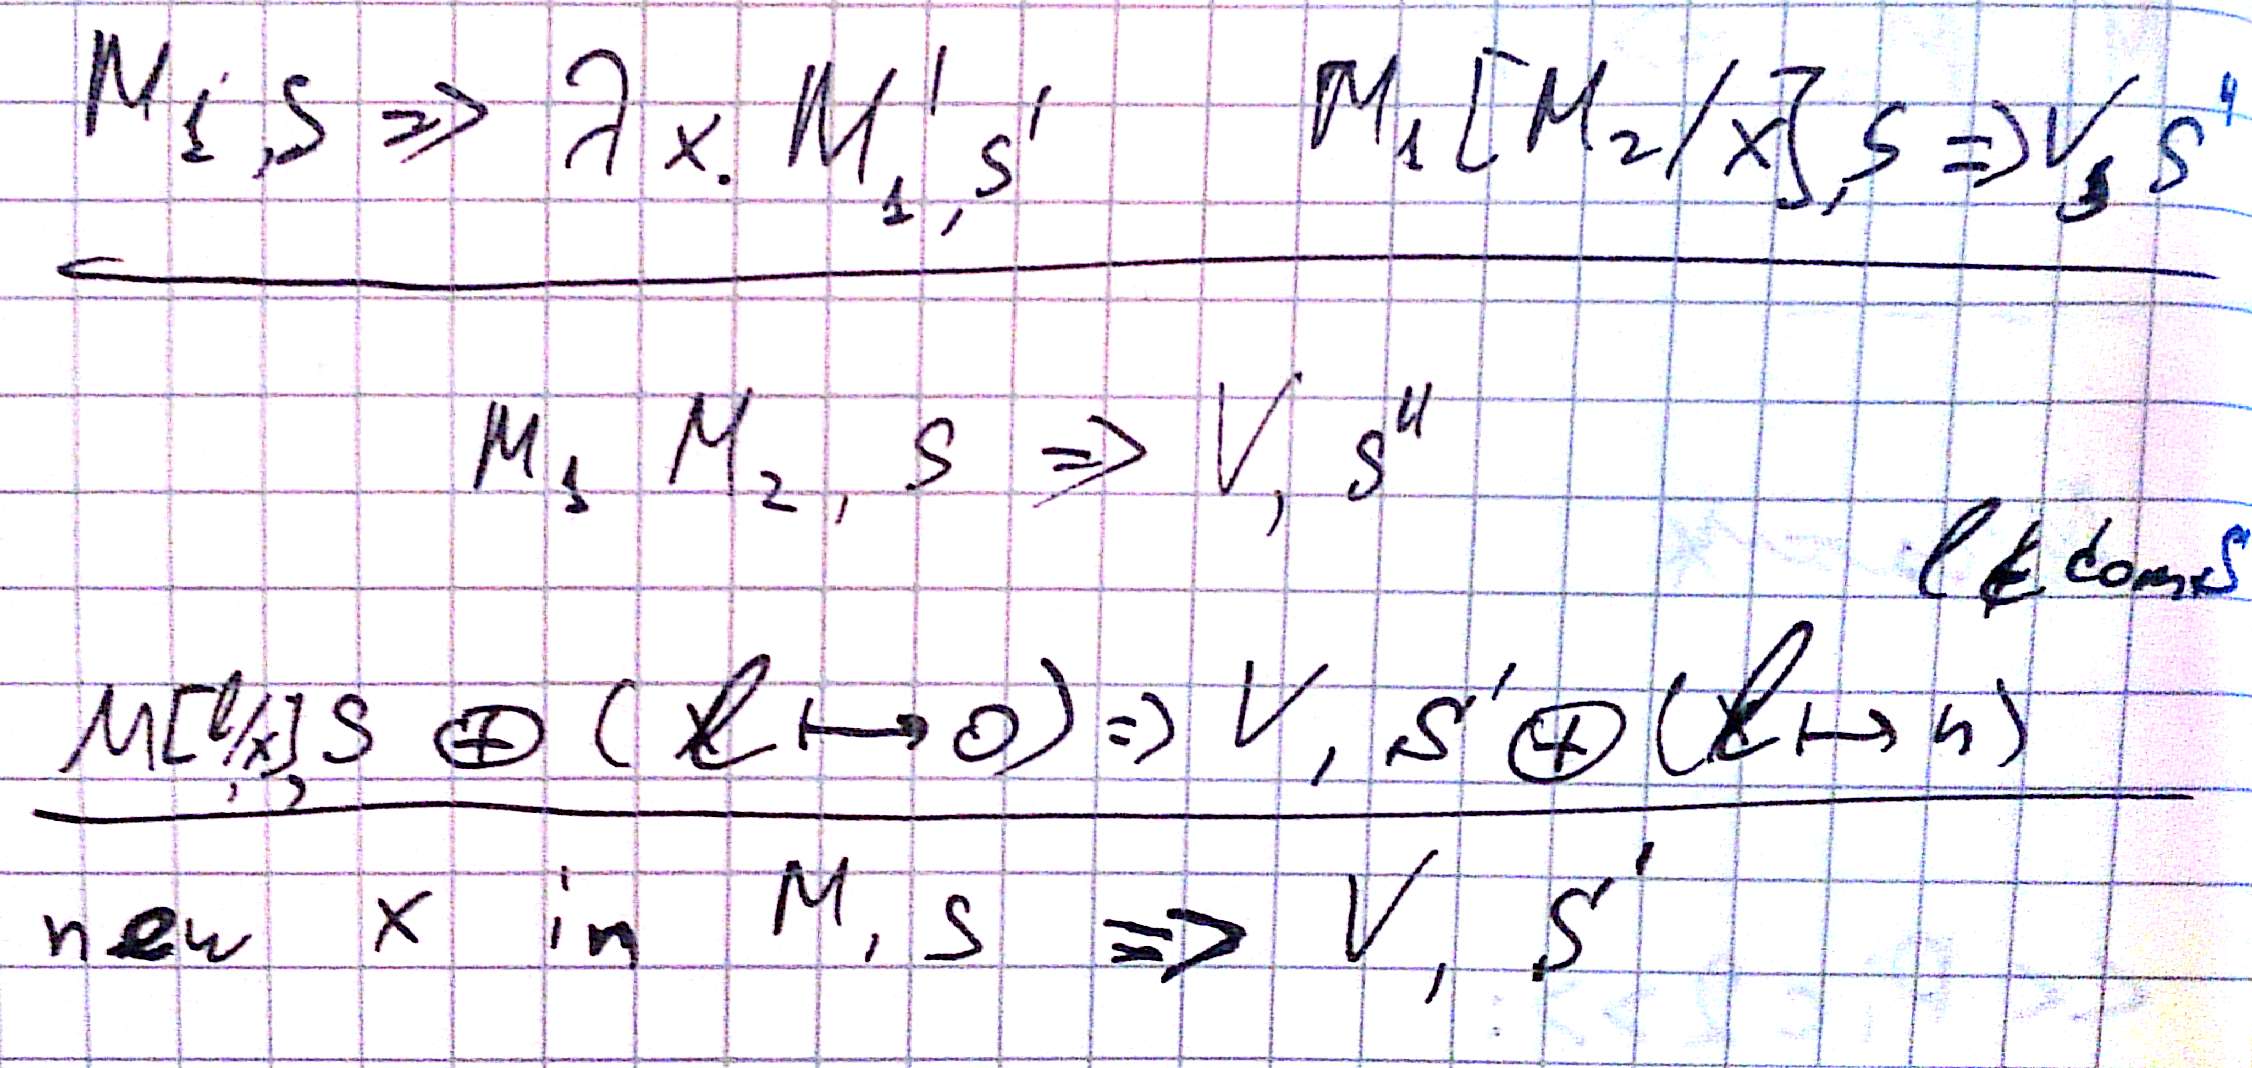 M₁, s ⇒ λx. M₁', s'    M₁[M₂/x], s ⇒ V, s''
M₁ M₂, s ⇒ V, s''
l ∉ dom s
M[l/x], s ⊕ (l ↦ 0) ⇒ V, s' ⊕ (l ↦ n)
new x in M, s ⇒ V, s'